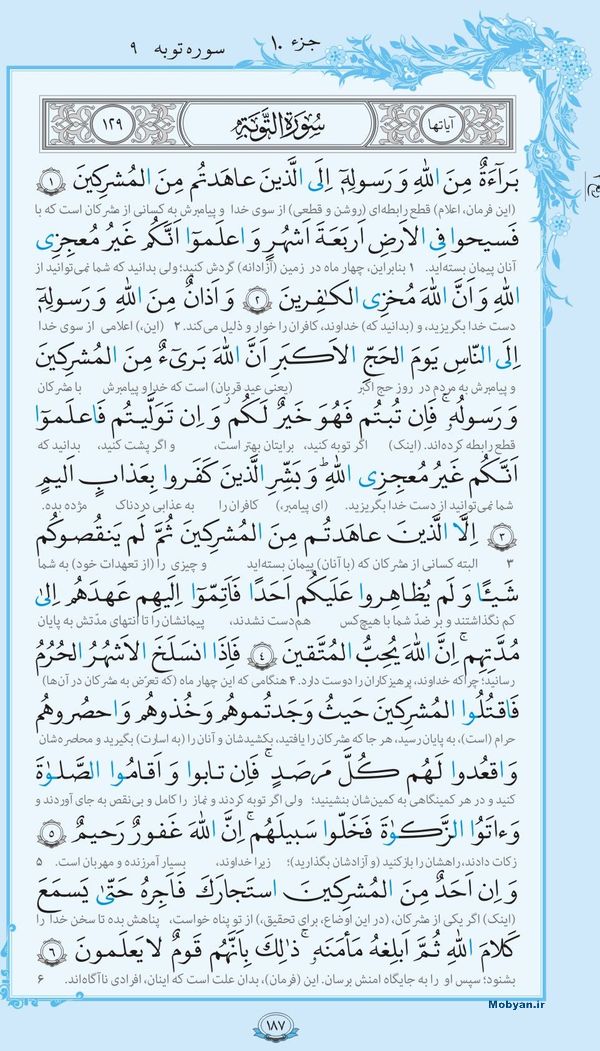 جزء ۱۰
سوره توبه ۹
آیاتها
سُورَةُ التَّوبَةِ
۱۲۹
بَرآءَةٌ مِنَ اللهِ وَ رَسولِهٖٓ اِلَی الَّذینَ عاهَدتُم مِنَ المُشرِکینَ ۱
(این فرمان، اعلام) قطع رابطه‌ای (روشن و قطعی) از سوی خدا و پیامبرش به کسانی از مشرکان است که با
فَسیحوا فِی الاَرضِ اَربَعَةَ اَشهُرٍ وَ اعلَموٓا اَنَّکُم غَیرُ مُعجِزِی
آنان پیمان بسته‌اید. ۱ بنابراین، چهار ماه در زمین (آزادانه) گردش کنید؛ ولی بدانید که شما نمی‌توانید از
اللهِ وَ اَنَّ اللهَ مُخزِی الکٰفِرینَ ۲ وَ اَذانٌ مِنَ اللهِ وَ رَسولِهٖٓ
دست خدا بگریزید، و (بدانید که) خداوند، کافران را خوار و ذلیل می‌کند. ۲ (این،) اعلامی از سوی خدا
اِلَی النّاسِ یَومَ الحَجِّ الاَکبَرِ اَنَّ اللهَ بَریٓءٌ مِنَ المُشرِکینَ
و پیامبرش به مردم در روز حج اکبر (یعنی عید قربان) است که خدا و پیامبرش با مشرکان
وَ رَسولُهٗ ۚ فَاِن تُبتُم فَهُوَ خَیرٌ لَکُم وَ اِن تَوَلَّیتُم فَاعلَموٓا
قطع رابطه کرده‌اند. (اینک) اگر توبه کنید، برایتان بهتر است، و اگر پشت کنید، بدانید که
اَنَّکُم غَیرُ مُعجِزِی اللهِ ۗ وَ بَشِّرِ الَّذینَ کَفَروا بِعَذابٍ اَلیمٍ
شما نمی‌توانید از دست خدا بگریزید. (ای پیامبر،) کافران را به عذابی دردناک مژده بده.
۳ اِلَّا الَّذینَ عاهَدتُم مِنَ المُشرِکینَ ثُمَّ لَم یَنقُصوکُم
۳ البته کسانی از مشرکان که (با آنان) پیمان بسته‌اید و چیزی را (از تعهدات خود) به شما
شَیـًٔا وَ لَم یُظاهِروا عَلَیکُم اَحَدًا فَاَتِمّوٓا اِلَیهِم عَهدَهُم اِلیٰ
کم نگذاشتند و بر ضدّ شما با هیچ‌کس هم‌دست نشدند، پیمانشان را تا انتهای مدّتش به پایان
مُدَّتِهِم ۚ اِنَّ اللهَ یُحِبُّ المُتَّقینَ ۴ فَاِذَا انسَلَخَ الاَشهُرُ الحُرُمُ
رسانید؛ چرا که خداوند، پرهیزکاران را دوست دارد. ۴ هنگامی که این چهار ماه (که تعرّض به مشرکان در آن‌ها)
فَاقتُلُوا المُشرِکینَ حَیثُ وَجَدتُموهُم وَ خُذوهُم وَ احصُروهُم
حرام (است)، به پایان رسید، هر جا که مشرکان را یافتید، بکشیدشان و آنان را (به اسارت) بگیرید و محاصره‌شان
وَ اقعُدوا لَهُم کُلَّ مَرصَدٍ ۚ فَاِن تابوا وَ اَقامُوا الصَّلوٰةَ
کنید و در هر کمینگاهی به کمین‌شان بنشینید؛ ولی اگر توبه کردند و نماز را کامل و بی‌نقص به جای آوردند و
وَ ءاتَوُا الزَّکوٰةَ فَخَلّوا سَبیلَهُم ۚ اِنَّ اللهَ غَفورٌ رَحیمٌ ۵
زکات دادند، راهشان را باز کنید (و آزادشان بگذارید)؛ زیرا خداوند، بسیار آمرزنده و مهربان است. ۵
وَ اِن اَحَدٌ مِنَ المُشرِکینَ استَجارَکَ فَاَجِرهُ حَتّیٰ یَسمَعَ
(اینک) اگر یکی از مشرکان، (در این اوضاع، برای تحقیق،) از تو پناه خواست، پناهش بده تا سخن خدا را
کَلامَ اللهِ ثُمَّ اَبلِغهُ مَأمَنَهٗ ۚ ذٰلِکَ بِاَنَّهُم قَومٌ لا یَعلَمونَ ۶
بشنود؛ سپس او را به جایگاه امنش برسان. این (فرمان)، بدان علت است که اینان، افرادی ناآگاه‌اند. ۶
۱۸۷
Mobyan.ir